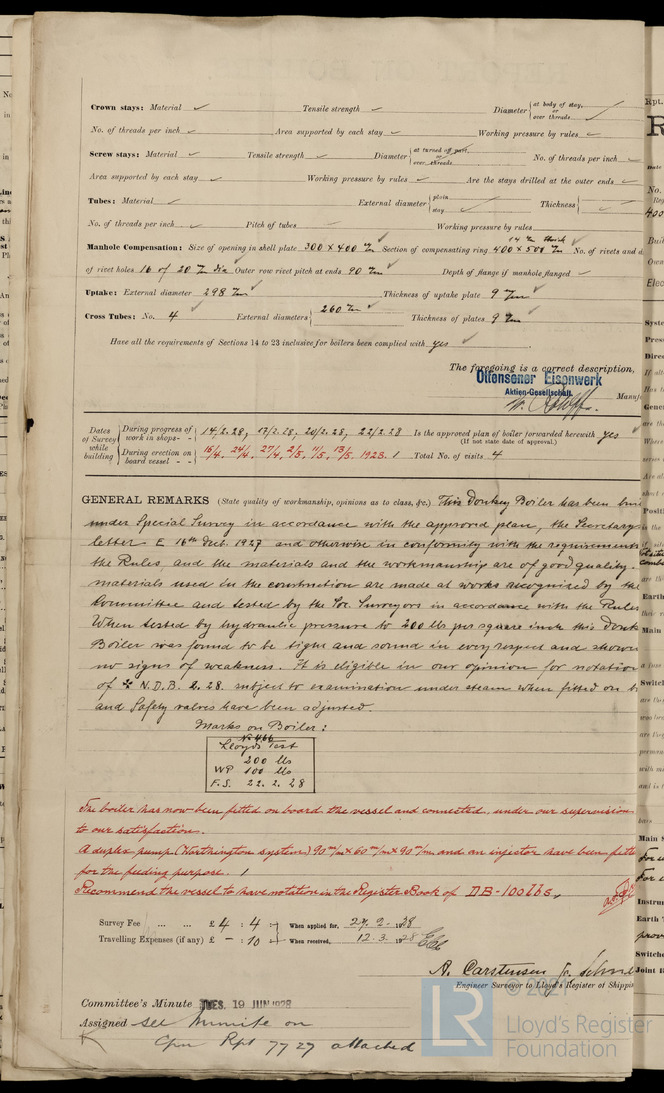 Crown stays: Material ✓ Tensile strength ✓ Diameter { at body of stay, or over threads. ✓
No. of threads per inch ✓ Area supported by each stay ✓ Working pressure by rules ✓
Screw stays: Material ✓ Tensile strength ✓ Diameter { at turned off part, or over threads ✓ No. of threads per inch ✓
Area supported by each stay ✓ Working pressure by rules ✓ Are the stays drilled at the outer ends ✓
Tubes: Material ✓ External diameter { plain stay ✓ Thickness { ✓
No. of threads per inch ✓ Pitch of tubes Working pressure by rules
Manhole Compensation: Size of opening in shell plate 300 x 400 m/m Section of compensating ring 400 x 500 m/m 14 m/m thick No. of rivets and d
of rivet holes 16 of 20 m/m dia Outer row rivet pitch at ends 90 m/m Depth of flange if manhole flanged ✓
Uptake: External diameter 298 m/m Thickness of uptake plate 9 m/m
Cross Tubes: No. 4 External diameters { 260 m/m Thickness of plates 9 m/m
Have all the requirements of Sections 14 to 23 inclusive for boilers been complied with yes
The foregoing is a correct description,
Ottensener Eisenwerk
Aktien-Gesellschaft.
Manuf
Dates of Survey while building { During progress of work in shops - - { 14/2.28, 17/2.28, 20/2.28, 22/2.28 Is the approved plan of boiler forwarded herewith yes
(If not state date of approval.)
During erection on board vessel - - { 24/4, 27/4, 2/5, 11/5, 1928. Total No. of visits 4
GENERAL REMARKS (State quality of workmanship, opinions as to class, &c.) This Donkey Boiler has been bui
under Special Survey in accordance with the approved plan, the Secretarys
letter E 16th Dec. 1927 and otherwise in conformity with the requirements
the Rules, and the materials and the workmanship are of good quality.
materials used in the construction are made at works recognised by the
Committee and tested by the Soc. Surveyors in accordance with the Rules
When tested by hydraulic pressure to 200 lbs per square inch this Donk
Boiler was found to be tight and sound in every respect and showed
no signs of weakness. It is eligible in our opinion for notation
of ✠ N.D.B. 2.28. subject to examination under steam when fitted on b
and Safety valves have been adjusted.
Marks on Boiler:
No 466
Lloyds Test
200 lbs
WP 100 lbs
F.S. 22.2.28
The boiler has now been fitted on board the vessel and connected under our supervision
to our satisfaction.
A duplex pump (Worthington system) 90 m/m x 60 m/m x 90 m/m and an injector have been fitte
for the feeding purpose.
Recommend the vessel to have notation in the Register Book of DB-100 lbs.
Survey Fee ... ... £ 4 : 4 : When applied for, 27.2.1928
Travelling Expenses (if any) £ - : 10 : When received, 12.3.1928
A. Carstensen
Engineer Surveyor to Lloyd's Register of Shippi
Committee's Minute TUES. 19 JUN 1928
Assigned see minute on
Rpt 7727 attached
LR © 2021
Lloyd's Register
Foundation